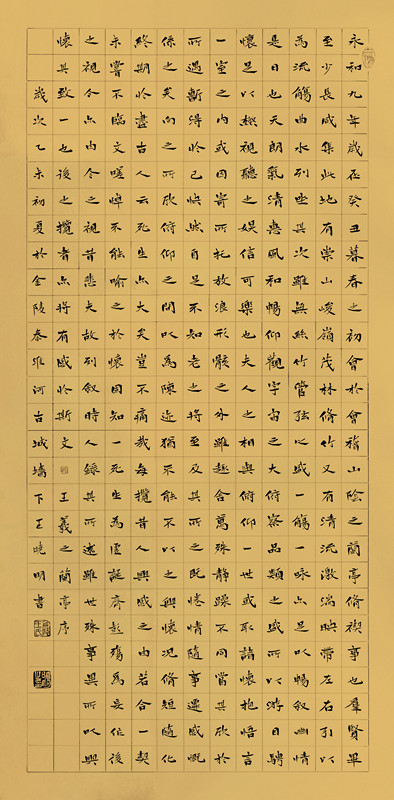 永和九年歲在癸丑暮春之初會於會稽山陰之蘭亭脩禊事也羣賢畢
至少長咸集此地有崇山峻嶺茂林脩竹又有清流激湍映帶左右引以
為流觴曲水列坐其次雖無絲竹管弦之盛一觴一詠亦足以暢叙幽情
是日也天朗氣清惠風和暢仰觀宇宙之大俯察品類之盛所以游目騁
懷足以極視聽之娛信可樂也夫人之相與俯仰一世或取諸懷抱悟言
一室之內或因寄所託放浪形骸之外雖趣舍萬殊靜躁不同當其欣於
所遇暫得於己快然自足不知老之將至及其所之既倦情隨事遷感慨
係之矣向之所欣俯仰之間以為陳迹猶不能不以之興懷況脩短隨化
終期於盡古人云死生亦大矣豈不痛哉每攬昔人興感之由若合一契
未嘗不臨文嗟悼不能喻之於懷固知一死生為虛誕齊彭殤為妄作後
之視今亦由今之視昔悲夫故列叙時人錄其所述雖世殊事異所以興
懷其致一也後之攬者亦將有感於斯文 王羲之蘭亭序
歲次乙未初夏於金陵秦淮河古城墻下王曉明書